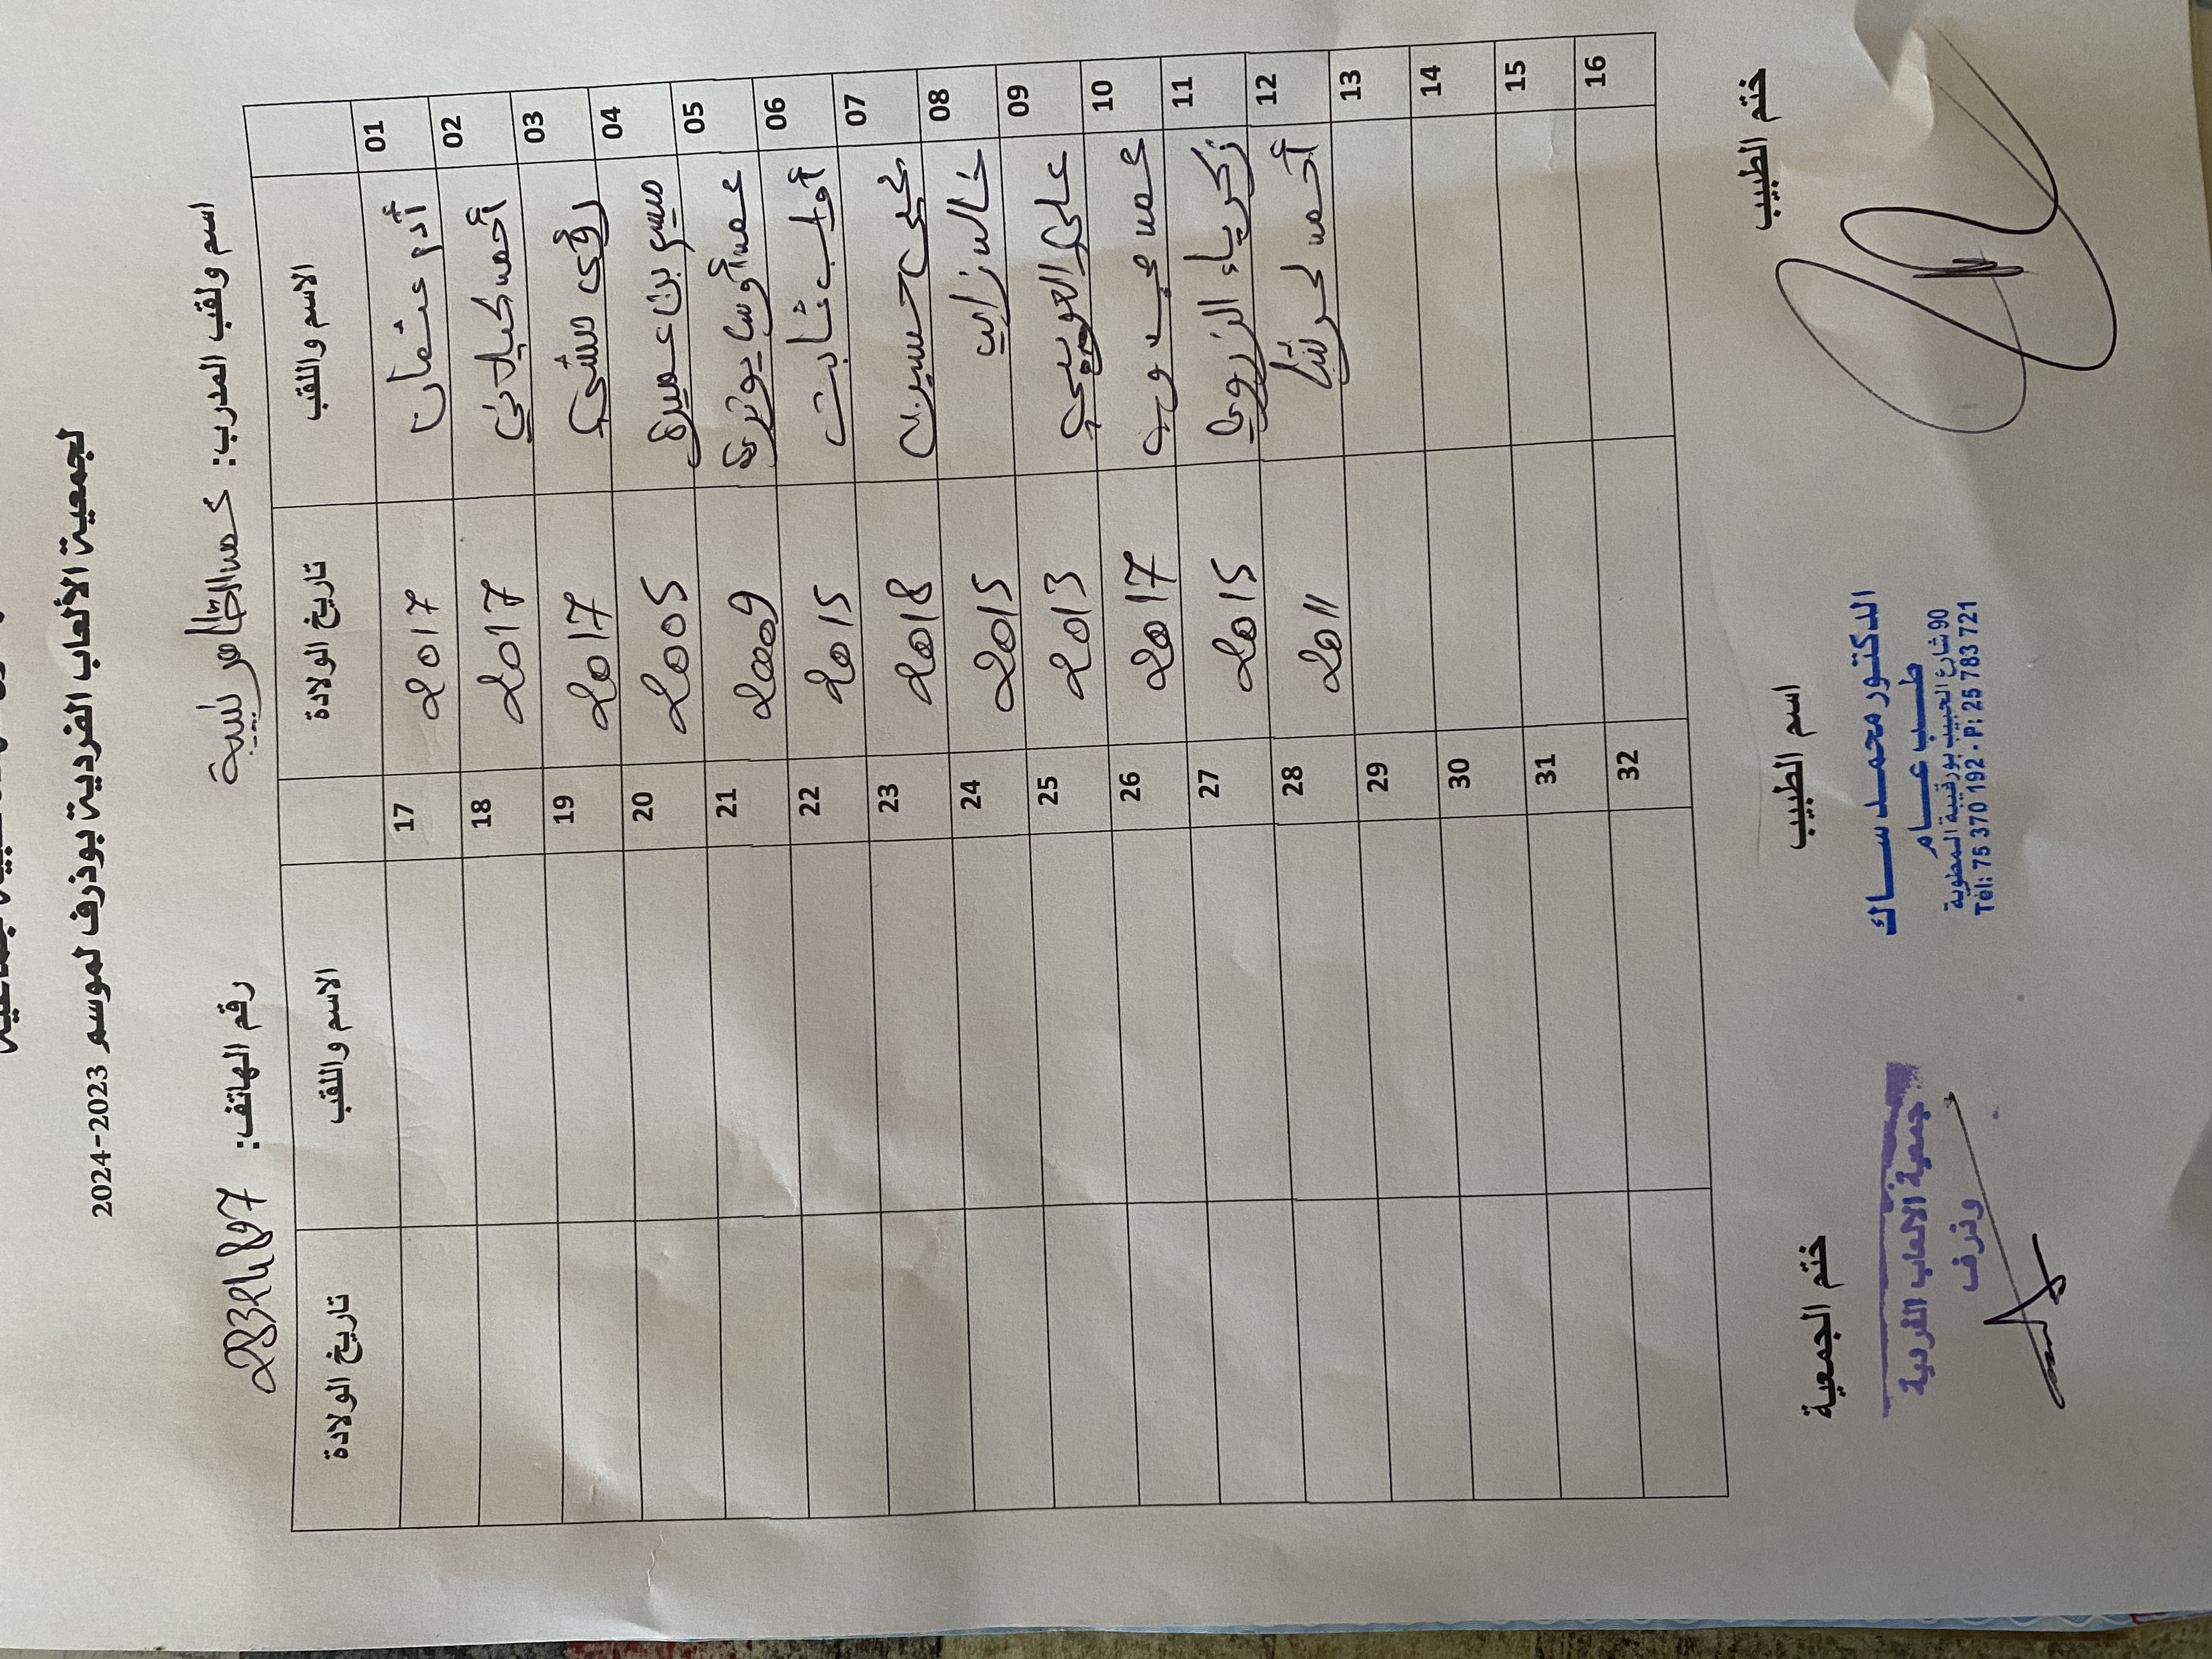 لجمعية الألعاب الفردية بوذرف لموسم 2023-2024
اسم ولقب المدرب: رقم الهاتف:
الاسم واللقب تاريخ الولادة الاسم واللقب تاريخ الولادة
01 آدم عثمان 2017 17
02 أحمد كيلاني 2017 18
03 2017 19
04 ميسم بن عميرة 2005 20
05 2009 21
06 أواب ثابت 2015 22
07 يحيى حسين 2018 23
08 2015 24
09 2013 25
10 2017 26
11 زكرياء الزروي 2015 27
12 أحمد 2011 28
13 29
14 30
15 31
16 32
ختم الطبيب اسم الطبيب ختم الجمعية
الدكتور محمد ساك
طب عام
90 شارع الحبيب بورقيبة المطوية
Tél: 75 370 192 - P: 25 783 721
جمعية الألعاب الفردية
وذرف